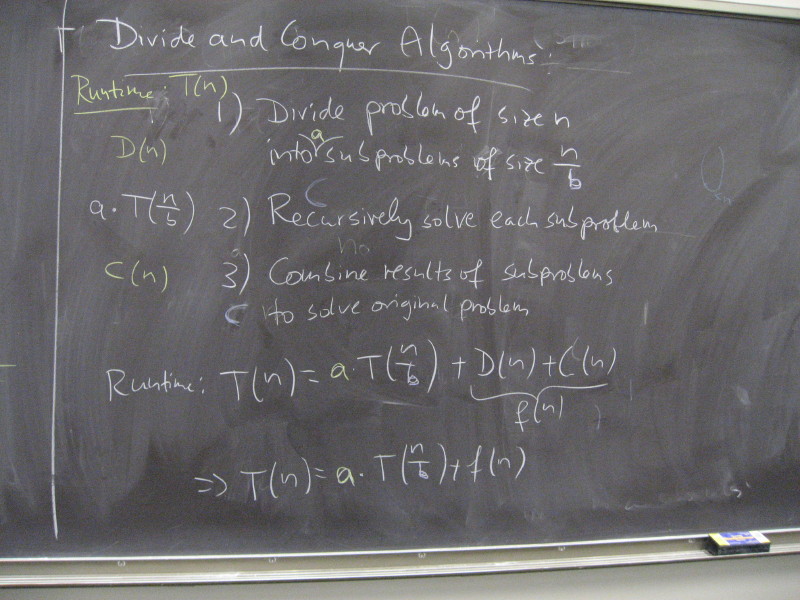 Divide and Conquer Algorithms:
Runtime: T(n)
1) Divide problem of size n
D(n) into a subproblems of size n/b
a · T(n/b) 2) Recursively solve each subproblem
C(n) 3) Combine results of subproblems
to solve original problem
Runtime: T(n) = a · T(n/b) + D(n) + C(n)
f(n)
⇒ T(n) = a · T(n/b) + f(n)